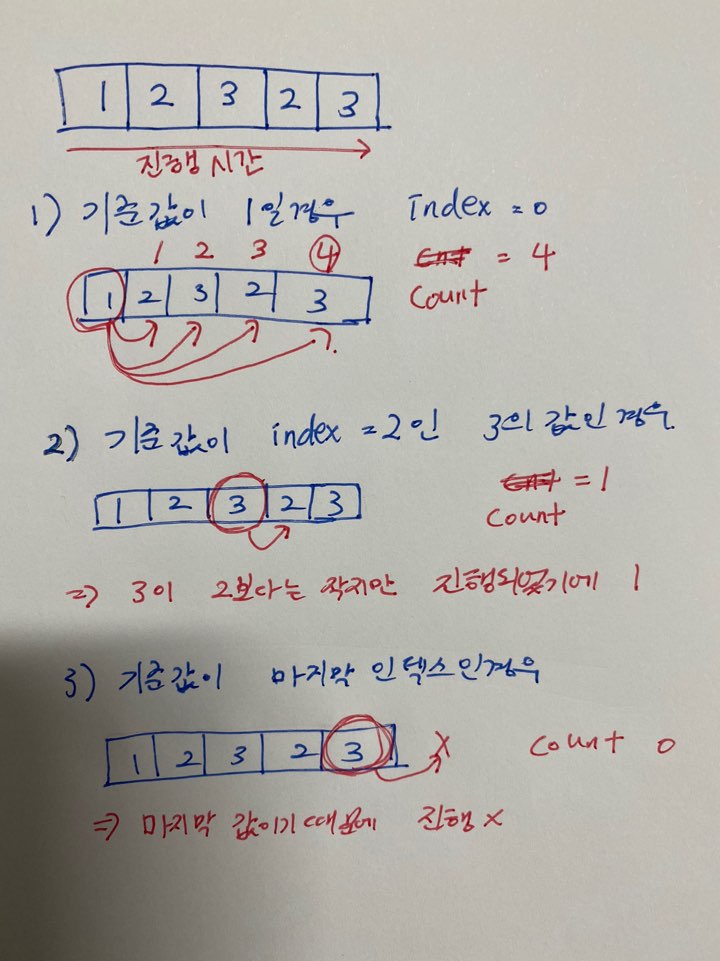 1 2 3 2 3
진행 시간
1) 기준값이 1일경우 index = 0
1 2 3 4 = 4
1 2 3 2 3 Count
2) 기준값이 index = 2인 3의 값인 경우
= 1
1 2 3 2 3 Count
=> 3이 2보다는 작지만 진행되었기에 1
3) 기준값이 마지막 인텍스인경우
1 2 3 2 3 X Count 0
=> 마지막 값이기 때문에 진행 X